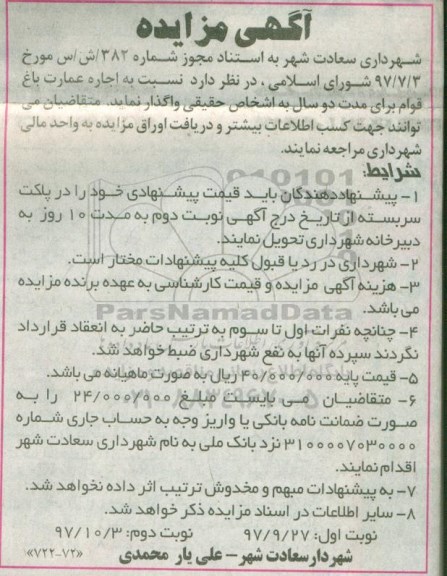 آگهی مزایده
شهرداری سعادت شهر به استناد مجوز شماره ۳۸۲/ش/س مورخ
۹۷/۷/۳ شورای اسلامی ، در نظر دارد نسبت به اجاره عمارت باغ
قوام برای مدت دو سال به اشخاص حقیقی واگذار نماید. متقاضیان می
توانند جهت کسب اطلاعات بیشتر و دریافت اوراق مزایده به واحد مالی
شهرداری مراجعه نمایند.
شرایط:
۱- پیشنهاددهندگان باید قیمت پیشنهادی خود را در پاکت
سربسته از تاریخ درج آگهی نوبت دوم به مدت ۱۰ روز به
دبیرخانه شهرداری تحویل نمایند.
۲- شهرداری در رد یا قبول کلیه پیشنهادات مختار است.
۳- هزینه آگهی مزایده و قیمت کارشناسی به عهده برنده مزایده
می باشد.
ParsNamadData
۴- چنانچه نفرات اول تا سوم به ترتیب حاضر به انعقاد قرارداد
نگردند سپرده آنها به نفع شهرداری ضبط خواهد شد.
۵- قیمت پایه ۴۰/۰۰۰/۰۰۰ ریال به صورت ماهیانه می باشد.
۶- متقاضیان می بایست مبلغ ۲۴/۰۰۰/۰۰۰ را به
صورت ضمانت نامه بانکی یا واریز وجه به حساب جاری شماره
۳۱۰۰۰۰۷۰۳۰۰۰۰ نزد بانک ملی به نام شهرداری سعادت شهر
اقدام نمایند.
۷- به پیشنهادات مبهم و مخدوش ترتیب اثر داده نخواهد شد.
۸- سایر اطلاعات در اسناد مزایده ذکر خواهد شد.
نوبت اول: ۹۷/۹/۲۷ نوبت دوم: ۹۷/۱۰/۳
شهردار سعادت شهر – علی یار محمدی «۷۲۲-۷۲»